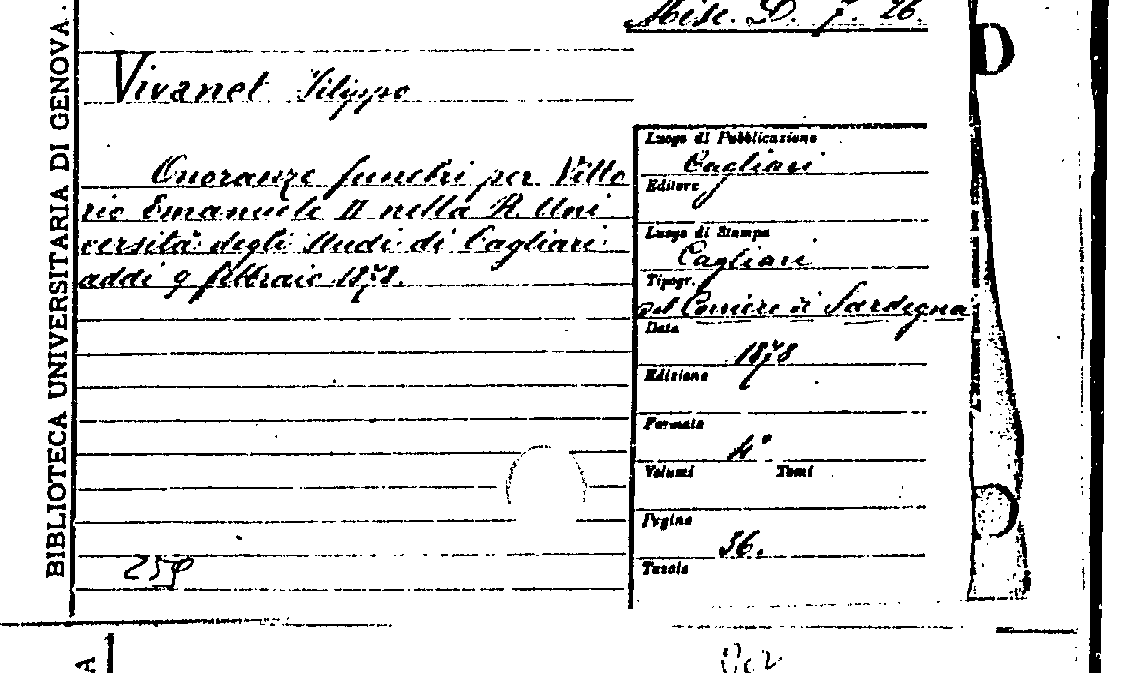 Misc. D. 7. 26.
BIBLIOTECA UNIVERSITARIA DI GENOVA.
Vivanet Filippo
Onoranze funebri per Vitto
rio Emanuele II nella R. Uni
versità degli Studi di Cagliari
addì 9 febbraio 1878.
259
Luogo di Pubblicazione
Cagliari
Editore
Luogo di Stampa
Cagliari
Tipogr.
del Corriere di Sardegna
Data
1878
Edizione
Formato
4°
Volumi Tomi
Pagine
36.
Tavole
A